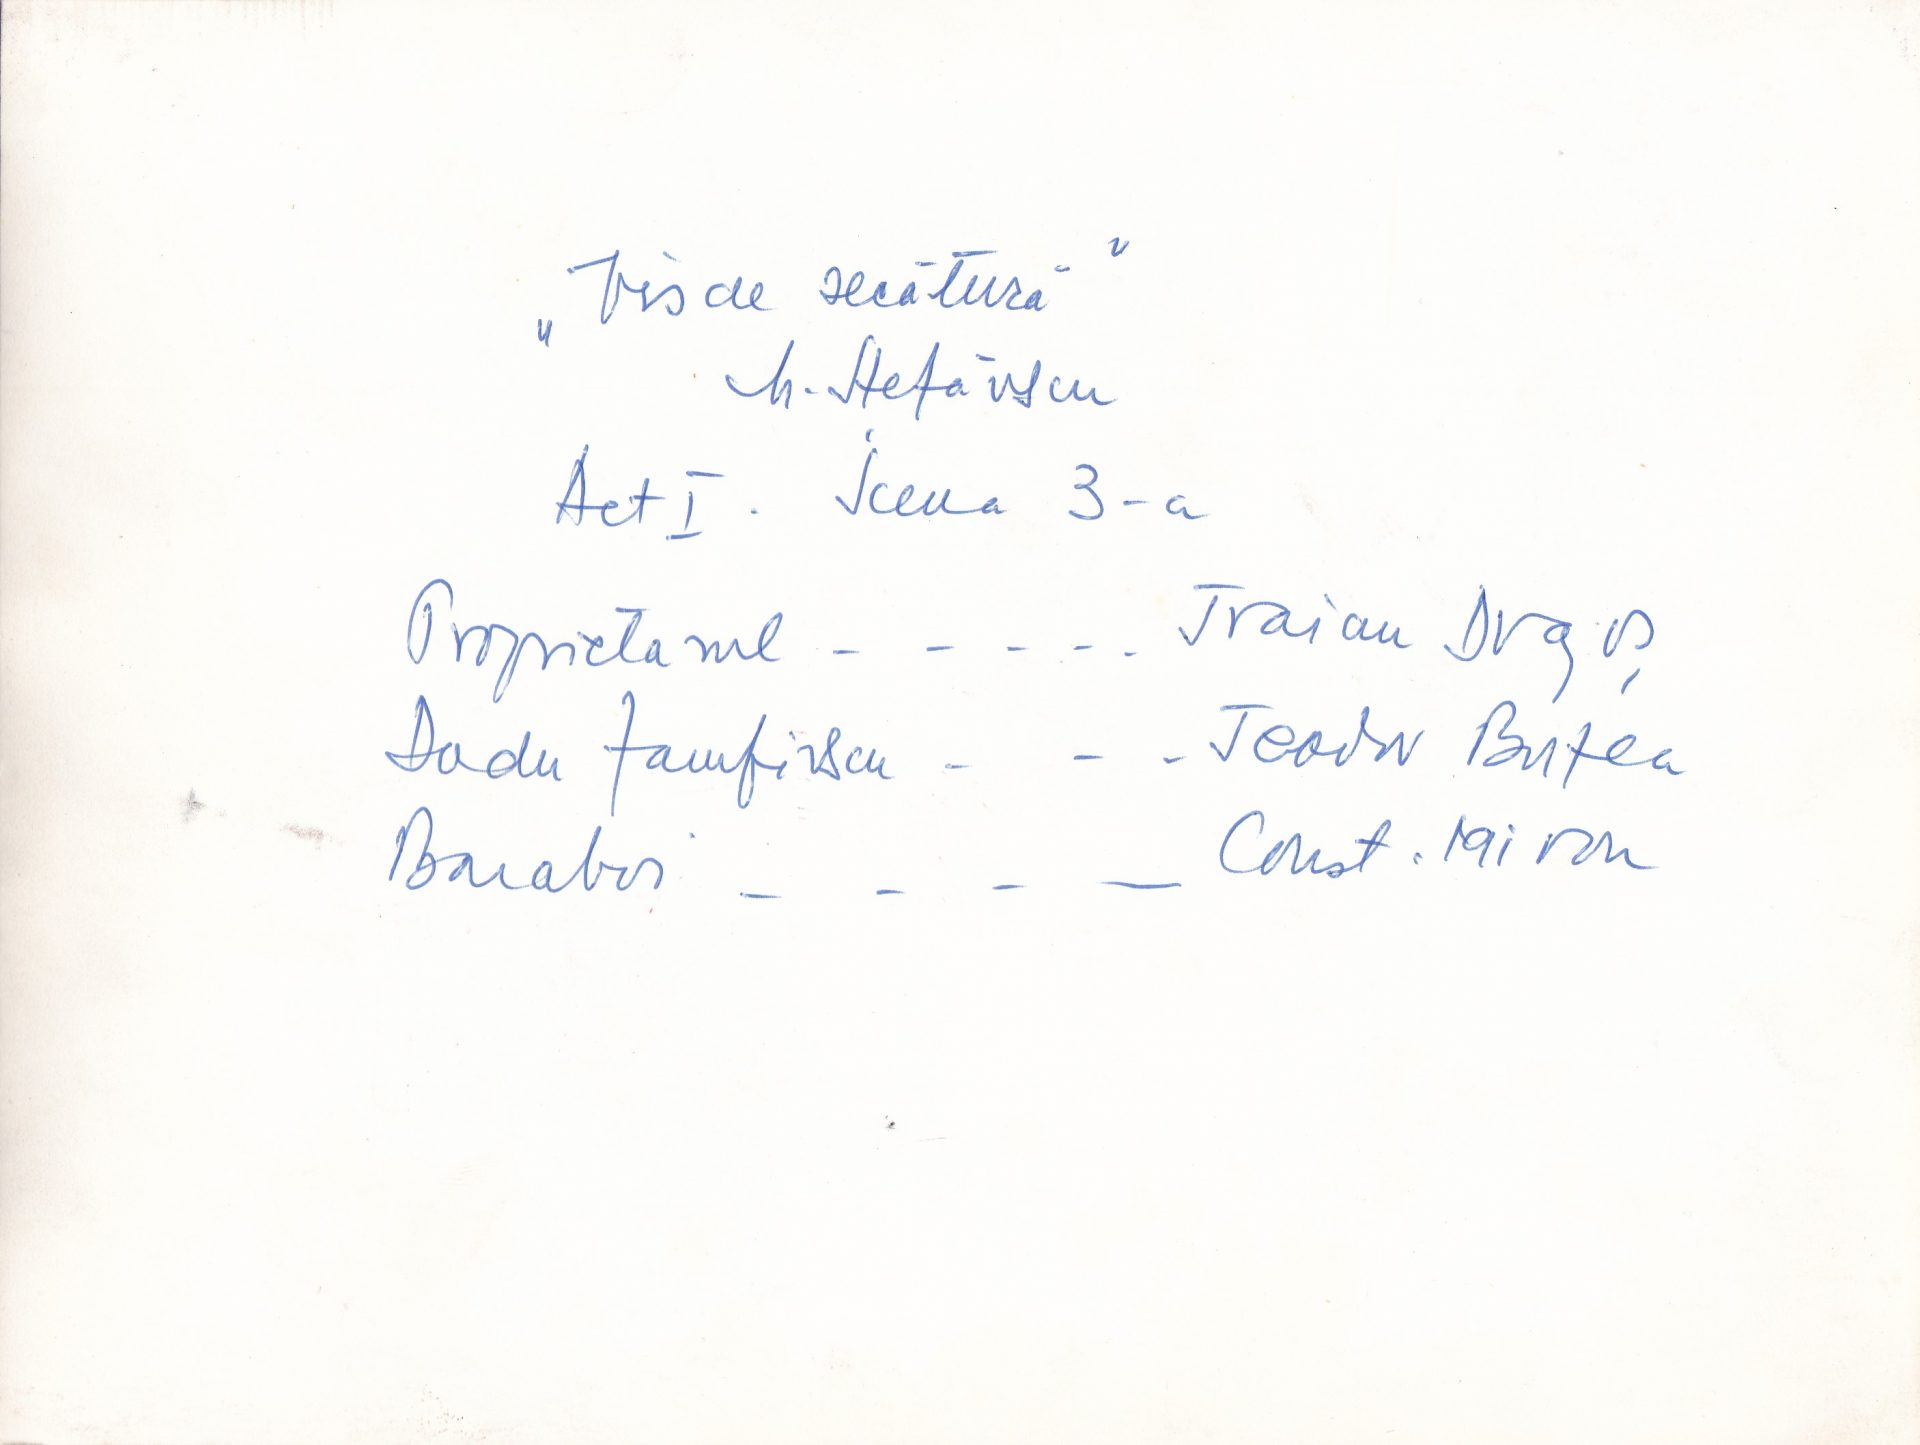 „Vis de secătură”
M. Ștefănescu
Act I. Scena 3-a
Proprietarul - - - - - Traian Dragoș
Dadu Zamfirescu - - - Teodor
Baraboi - - - - Const. Miron